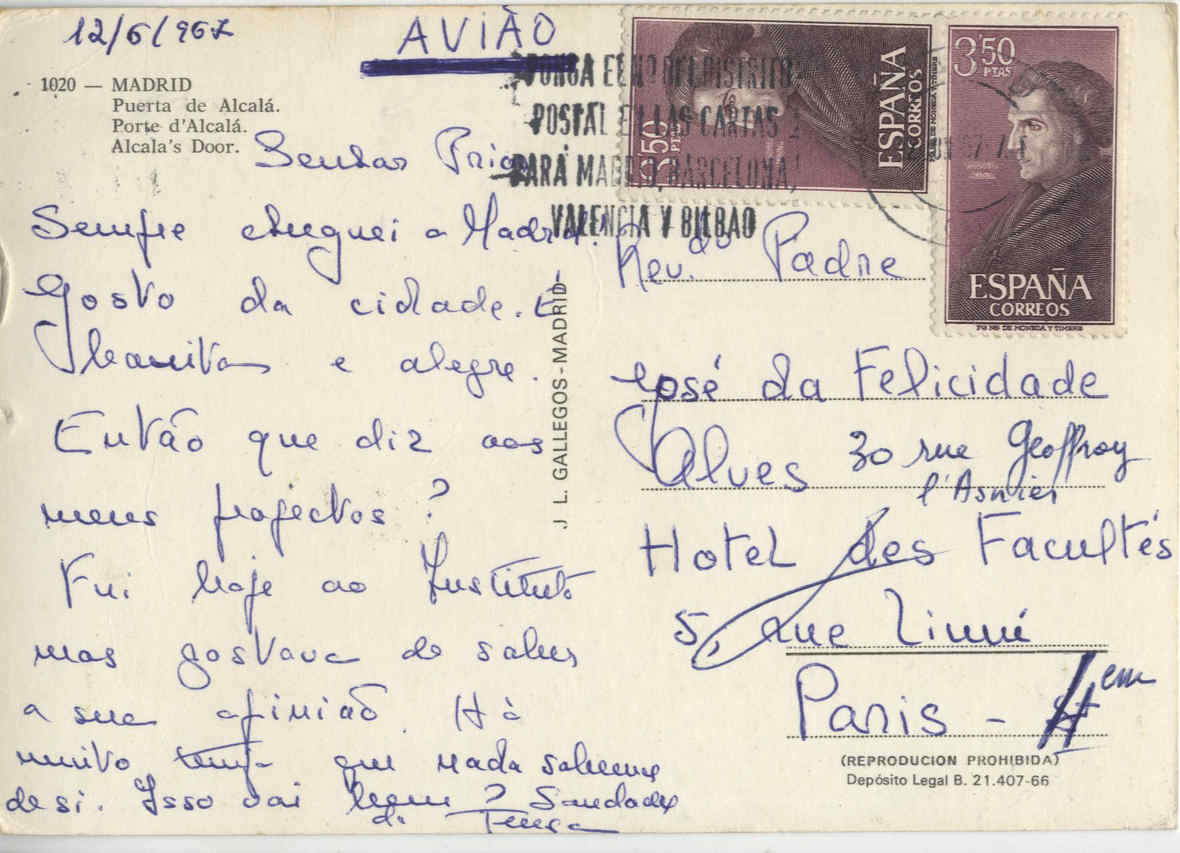 12/6/967
AVIÃO
1020 — MADRID
Puerta de Alcalá.
Porte d'Alcalá.
Alcala's Door.
Senhor Prior
Sempre cheguei a Madrid.
Gosto da cidade. É
bonita e alegre.
Então que diz aos
meus projectos?
Fui hoje ao Instituto
mas gostava de saber
a sua opinião. Há
muito tempo que nada sabemos
de si. Isso vai bem? Saudades
da Teresa
J. L. GALLEGOS-MADRID
PONGA EL Nº DEL DISTRITO
POSTAL EN LAS CARTAS
PARA MADRID, BARCELONA,
VALENCIA Y BILBAO
3'50
PTAS
ESPAÑA
CORREOS
3'50
PTAS
ESPAÑA
CORREOS
Rev.do Padre
José da Felicidade
Alves 30 rue Geoffroy
l'Asnier
Hotel des Facultés
5, rue Linné
Paris - 4em
(REPRODUCION PROHIBIDA)
Depósito Legal B. 21.407-66